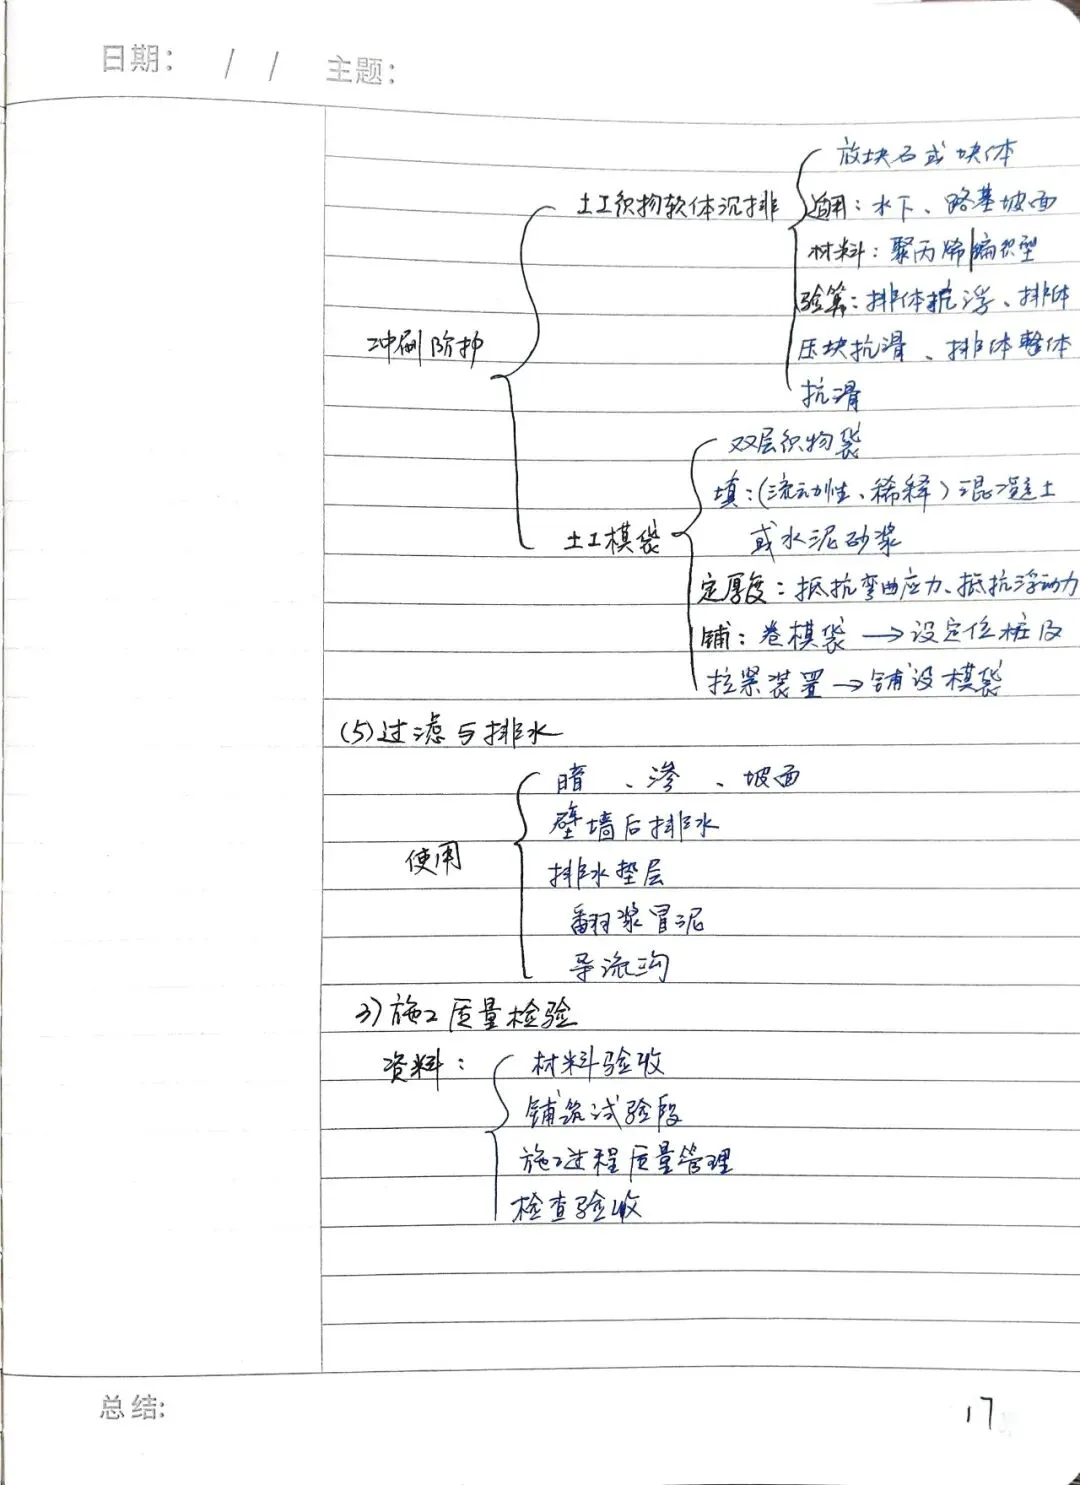 日期: / / 主题:
放块石或块体
土工织物软体沉排
适用:水下、路基坡面
材料:聚丙烯编织型
验算:排体抗浮、排体
冲刷防护
压块抗滑、排体整体
抗滑
双层织物袋
填:(流动性、稀释)混凝土
土工模袋
或水泥砂浆
定厚度:抵抗弯曲应力、抵抗浮动力
铺:卷模袋→设定位桩及
拉紧装置→铺设模袋
(5)过滤与排水
暗 、渗 、坡面
壁墙后排水
使用
排水垫层
翻浆冒泥
导流沟
3)施工质量检验
资料:
材料验收
铺筑试验段
施工过程质量管理
检查验收
总结:
17